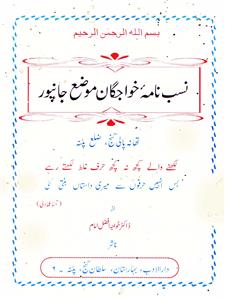 بسم الله الرحمن الرحيم
نسب نامۂ خواجگان موضع جانپور
تھانہ پالی گنج، ضلع پٹنہ
لکھنے والے کچھ نہ کچھ حرف غلط لکھتے رہے
بس انہیں حرفوں سے میری داستاں بنتی گئی
از
ڈاکٹر خواجہ افضل امام
ناشر
دارالادب، بہارستان، سلطان گنج، پٹنہ - ۶